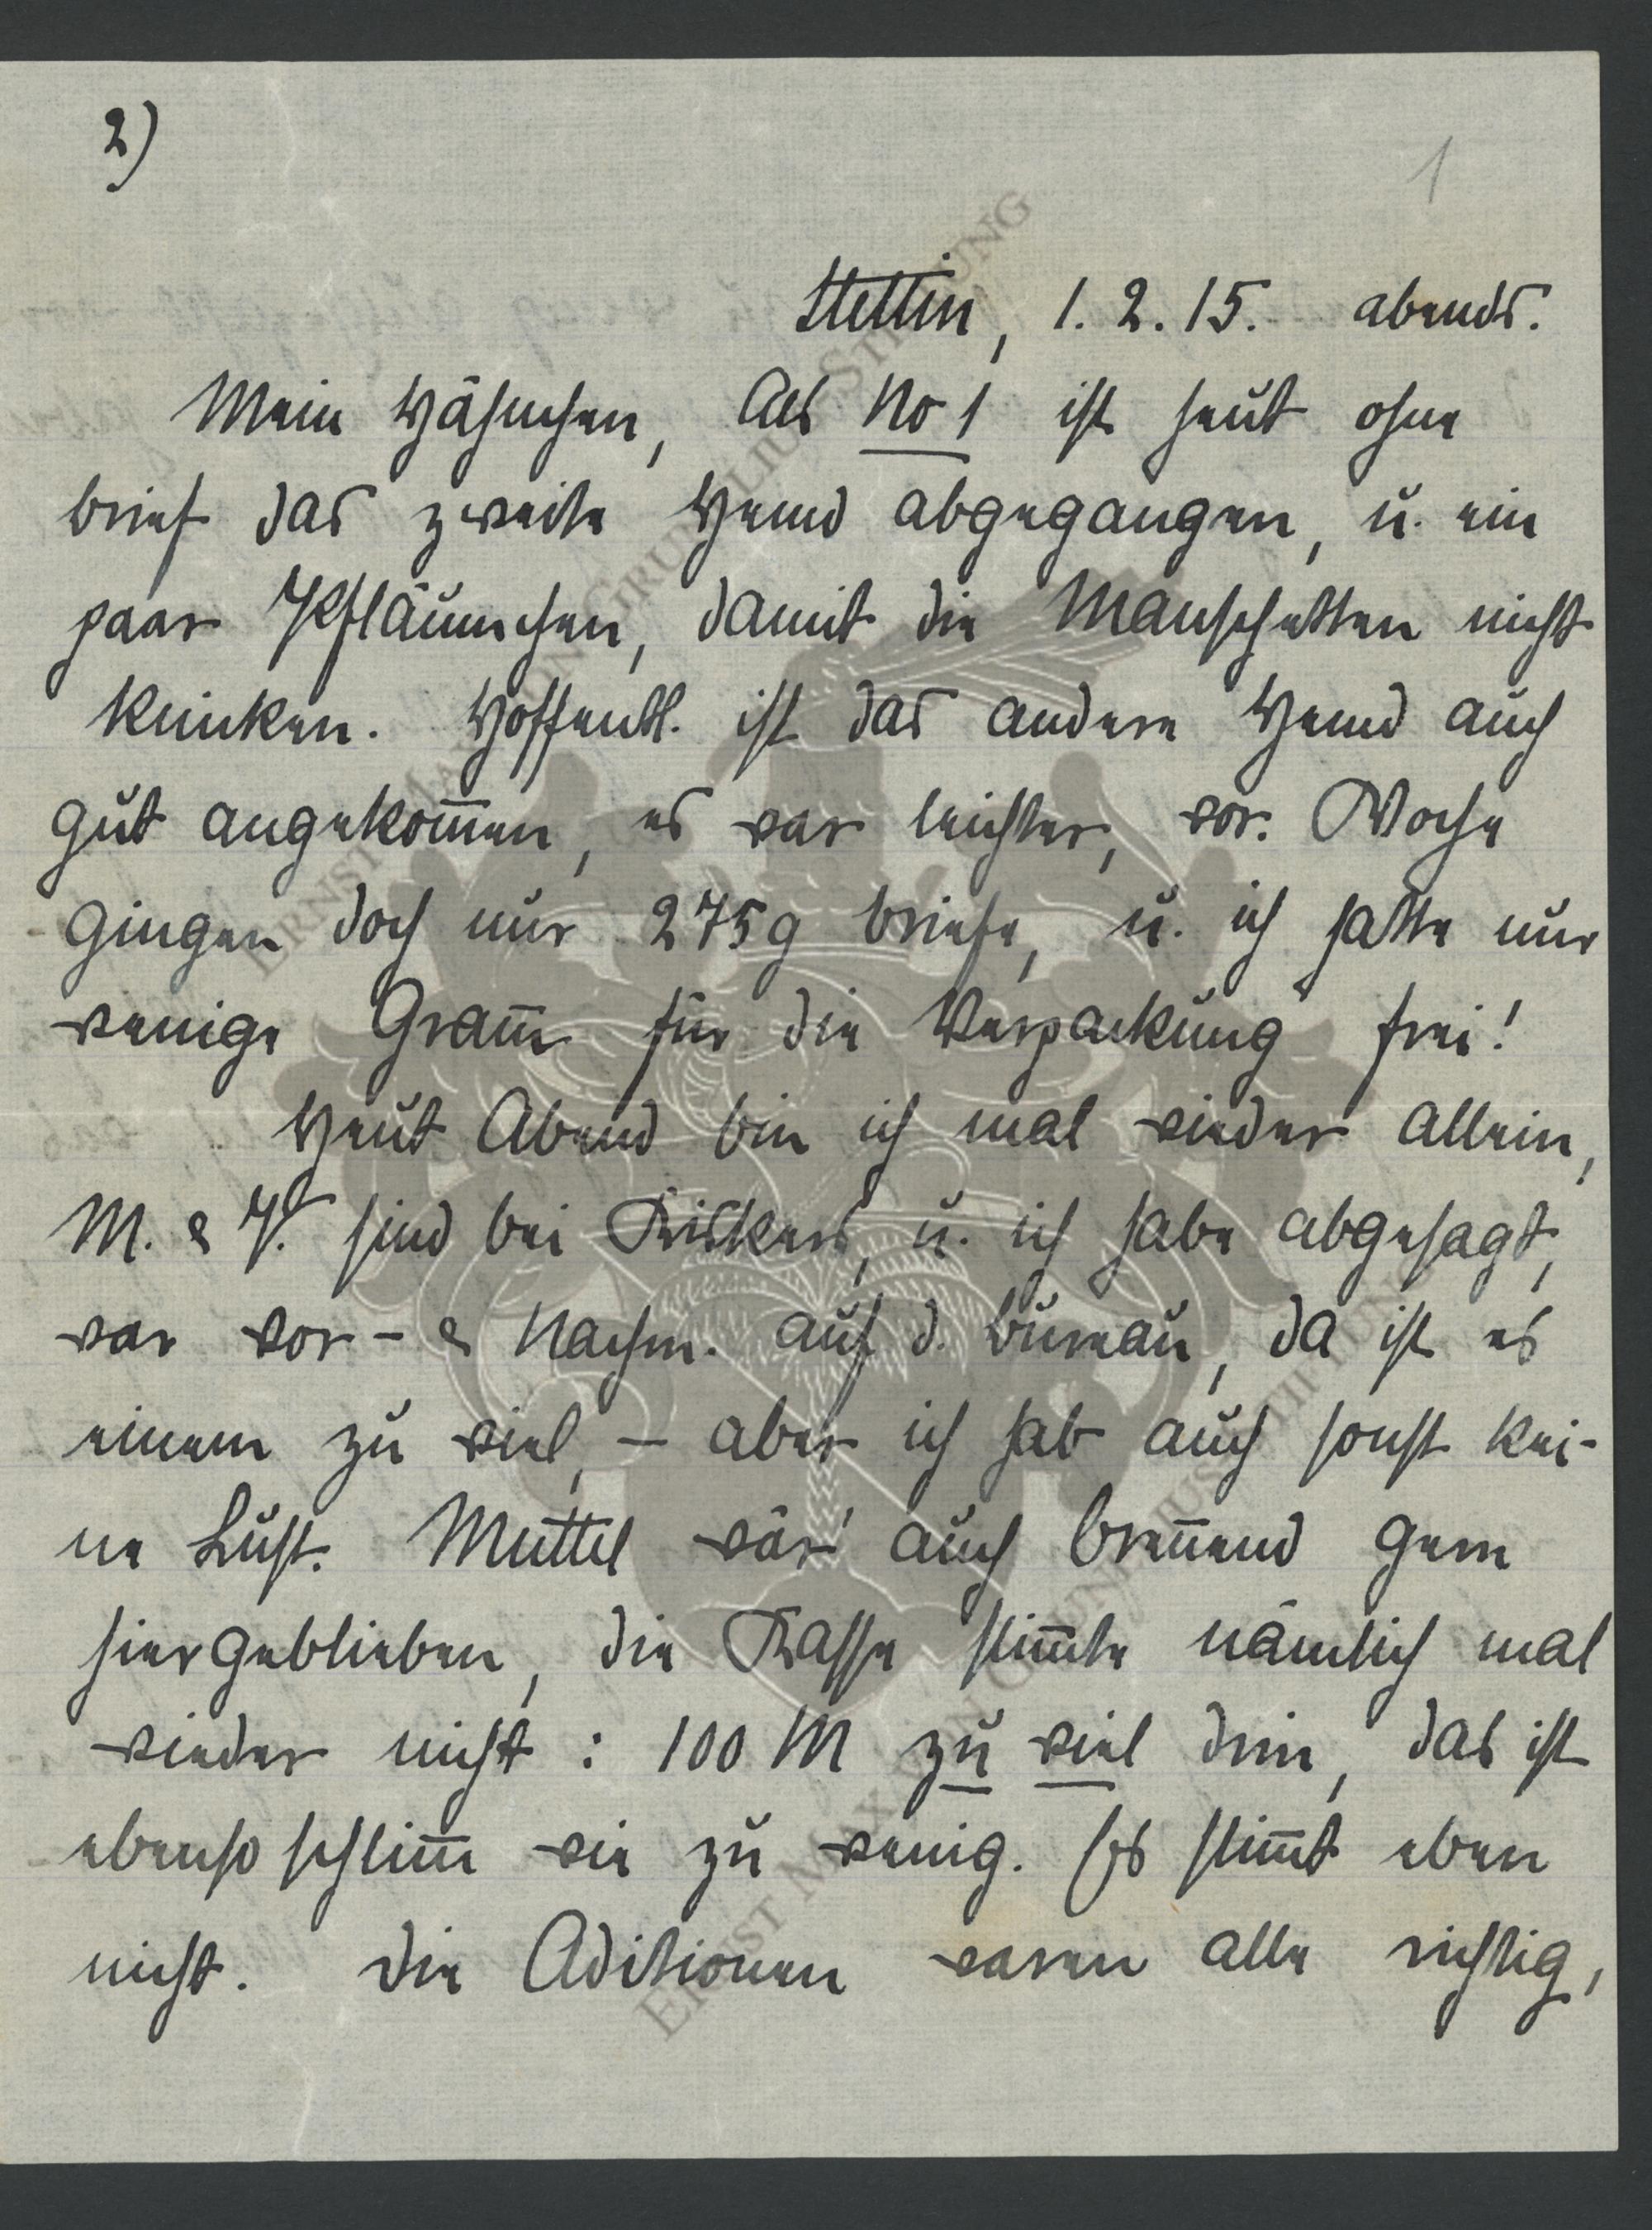 2)
1
Stettin, 1.2.15. abends.
Mein Hähnchen, Als No 1 ist heut ohne
Brief das zweite Hemd abgegangen, u. ein
paar Pfläumchen, damit die Manschetten nicht
knicken. Hoffentl. ist das andere Hemd auch
gut angekom̅en, es war leichter, vor. Woche
gingen doch nur 275g Briefe, u. ich hatte nur
wenige Gram̅ für die Verpackung frei!
Heut Abend bin ich mal wieder allein,
M. & P. sind bei u. ich habe abgesagt,
war vor- & Nachm. auf d. Bureau, da ist es
einem zu viel, – aber ich hab auch sonst kei-
ne Lust. Muttel wär' auch bren̅end gern
hiergeblieben, die Kasse stim̅te nämlich mal
wieder nicht: 100 M zu viel drin, das ist
ebenso schlim̅ wie zu wenig. Es stim̅t eben
nicht. Die Aditionen waren alle richtig,
ERNST MAX VON GRUNELIUS STIFTUNG
ERNST MAX VON GRUNELIUS STIFTUNG